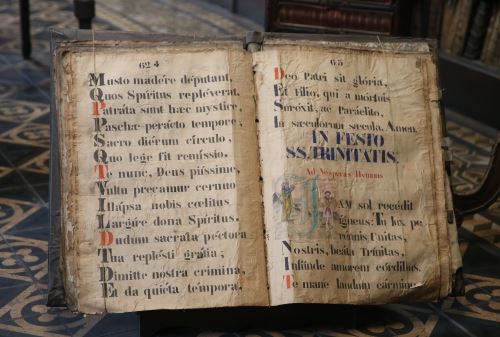 62 4
Musto madére députant,
Quos Spíritus repléverat.
Patráta sunt hæc mystice,
Paschæ perácto tempore,
Sacro diérum círculo,
Quo lege fit remíssio.
Te nunc, Deus piíssime,
Vultu precamur cernuo
Illápsa nobis cœlitus
Largíre dona Spiritus.
Dudum sacrata péctora
Tua replésti gratia;
Dimitte nostra crímina,
Et da quiéta tempora,
63
Deo Patri sit glória,
Et Filio, qui a mórtuis
Surréxit, ac Paráclito,
In sæculorum sæcula. Amen.
IN FESTO
SS. TRINITATIS.
Ad Vesperas Hymnus
JAM sol recédit
igneus: Tu lux pe
rennis Unitas,
Nostris, beáta Trínitas,
Infúnde amorem córdibus,
Te mane laudum cármine